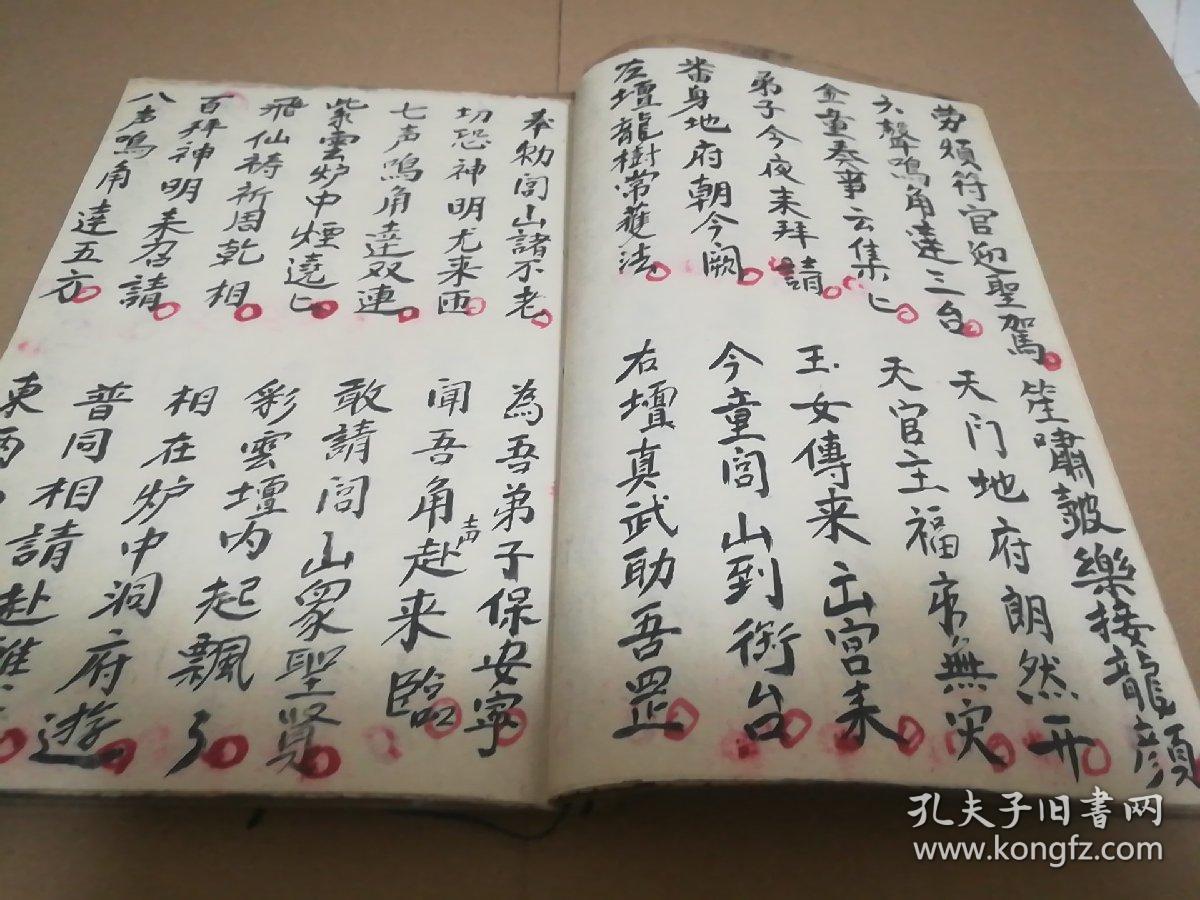 劳煩符官迎聖駕
笙嘯皷樂接龍顔
六聲鳴角達三台
天门地府朗然开
金童奏事云集匕
天官主福永無灾
弟子今夜来拜請
玉女傳来出宫来
茶身地府朝今阙
今童闾山到衔台
左壇龍樹常護法
右壇真武助吾罡
奉勅闾山諸不老
為吾弟子保安寧
切恐神明尤来西
闻吾角声赴来臨
七声鳴角達双連
敢請闾山眾聖賢
紫雲炉中煙遶匕
彩雲壇内起飄
飛仙祷祈周乾相
相在炉中洞府遊
百拜神明来召請
普同相請赴
八声鳴角達五方
東西
孔夫子旧书网
www.kongfz.com